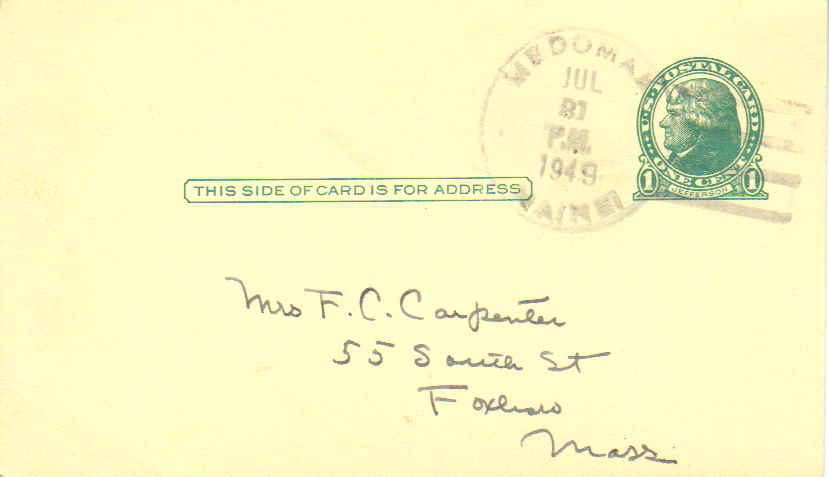 MEDOMAK
JUL
31
P.M.
1949
MAINE
U.S. POSTAL CARD
ONE CENT
1 JEFFERSON 1
THIS SIDE OF CARD IS FOR ADDRESS
Mrs F. C. Carpenter
55 South St
Foxboro
Mass